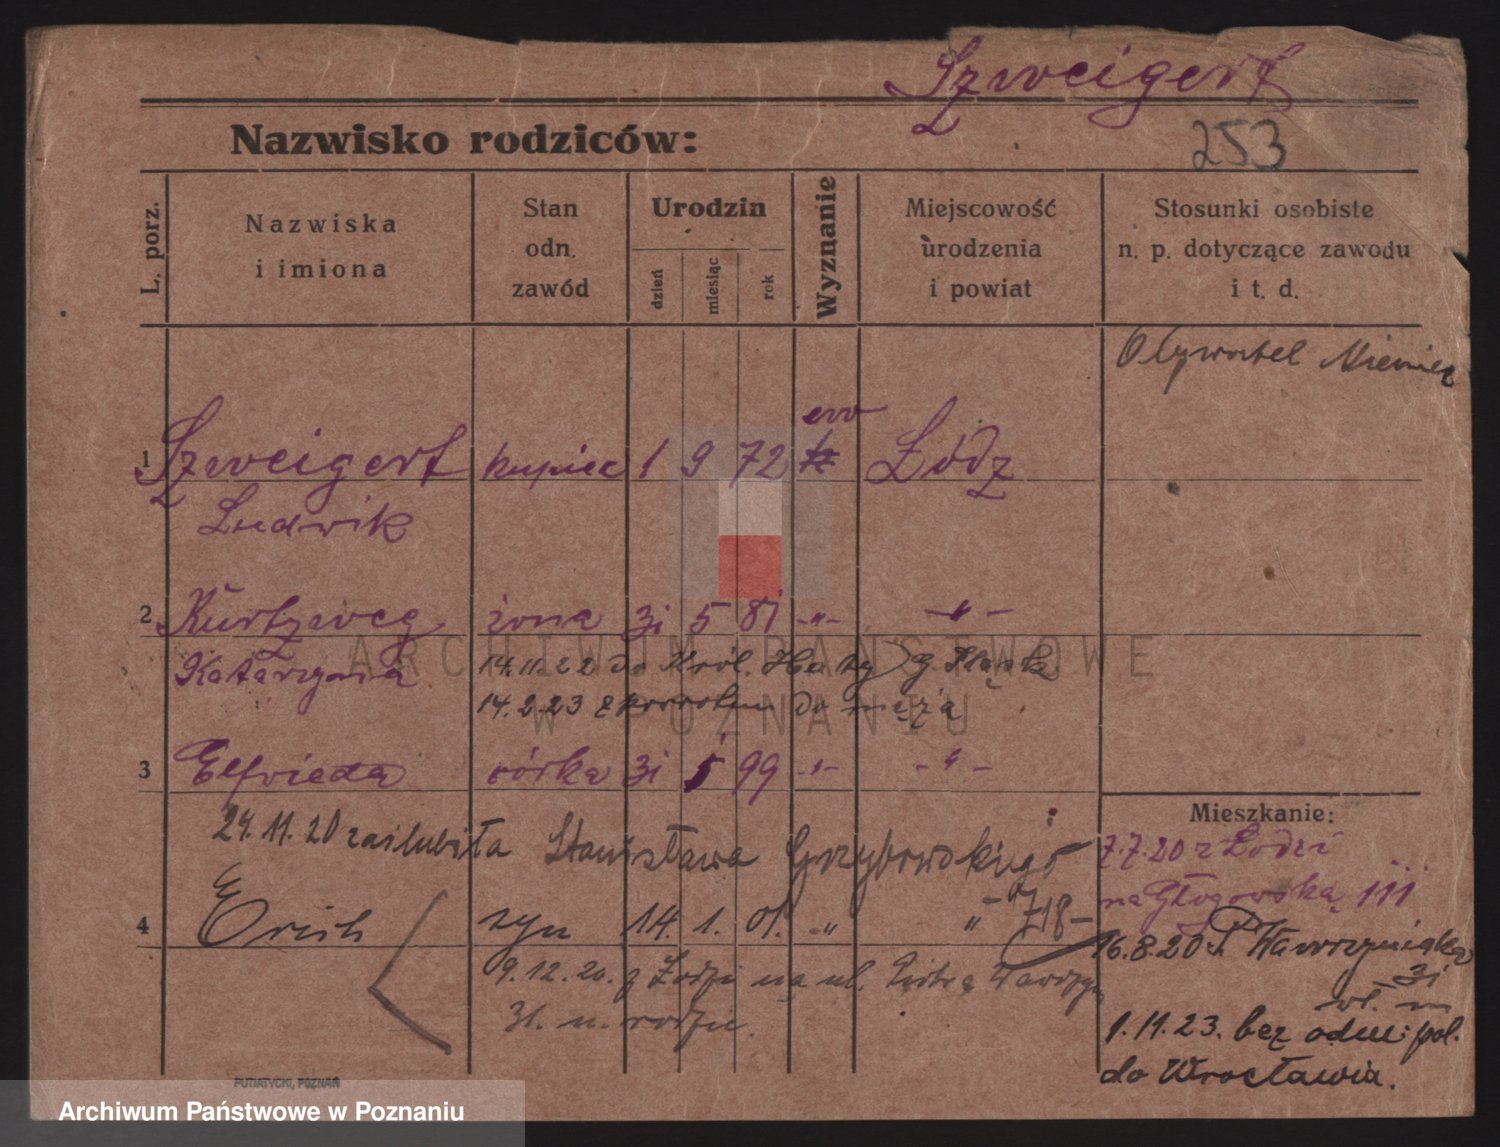 Szweigert
Nazwisko rodziców:
253
L. porz.
Nazwiska
i imiona
Stan
odn.
zawód
Urodzin
dzień
miesiąc
rok
Wyznanie
Miejscowość
urodzenia
i powiat
Stosunki osobiste
n. p. dotyczące zawodu
i t. d.
Obywatel Niemiec
1 Szweigert kupiec 1 9 72 ew Łódz
Ludwik
2 Kurtzweg żona 31 5 81 -„- -„-
Katarzyna 14.11.22 do Król. Huty G. Śląsk
14.2.23 z powrotem do męża
3 Elfrieda córka 31 5 99 -„- -„-
24.11.20 zaślubiła Stanisława Grzybowskiego
4 Erich syn 14. 1. 01. „ „ -718-
9.12.20. z Łodzi na ul. Piotra Wawrzyn
31. u. rodzic.
Mieszkanie:
7.7.20 z Łodzi
na Głogowską 111
16.8.20 P Wawrzyniaka
31
wł. m
1.11.23. bez odm. pol.
do Wrocławia.
PUTIATYCKI, POZNAŃ
ARCHIWUM PAŃSTWOWE
W POZNANIU
Archiwum Państwowe w Poznaniu